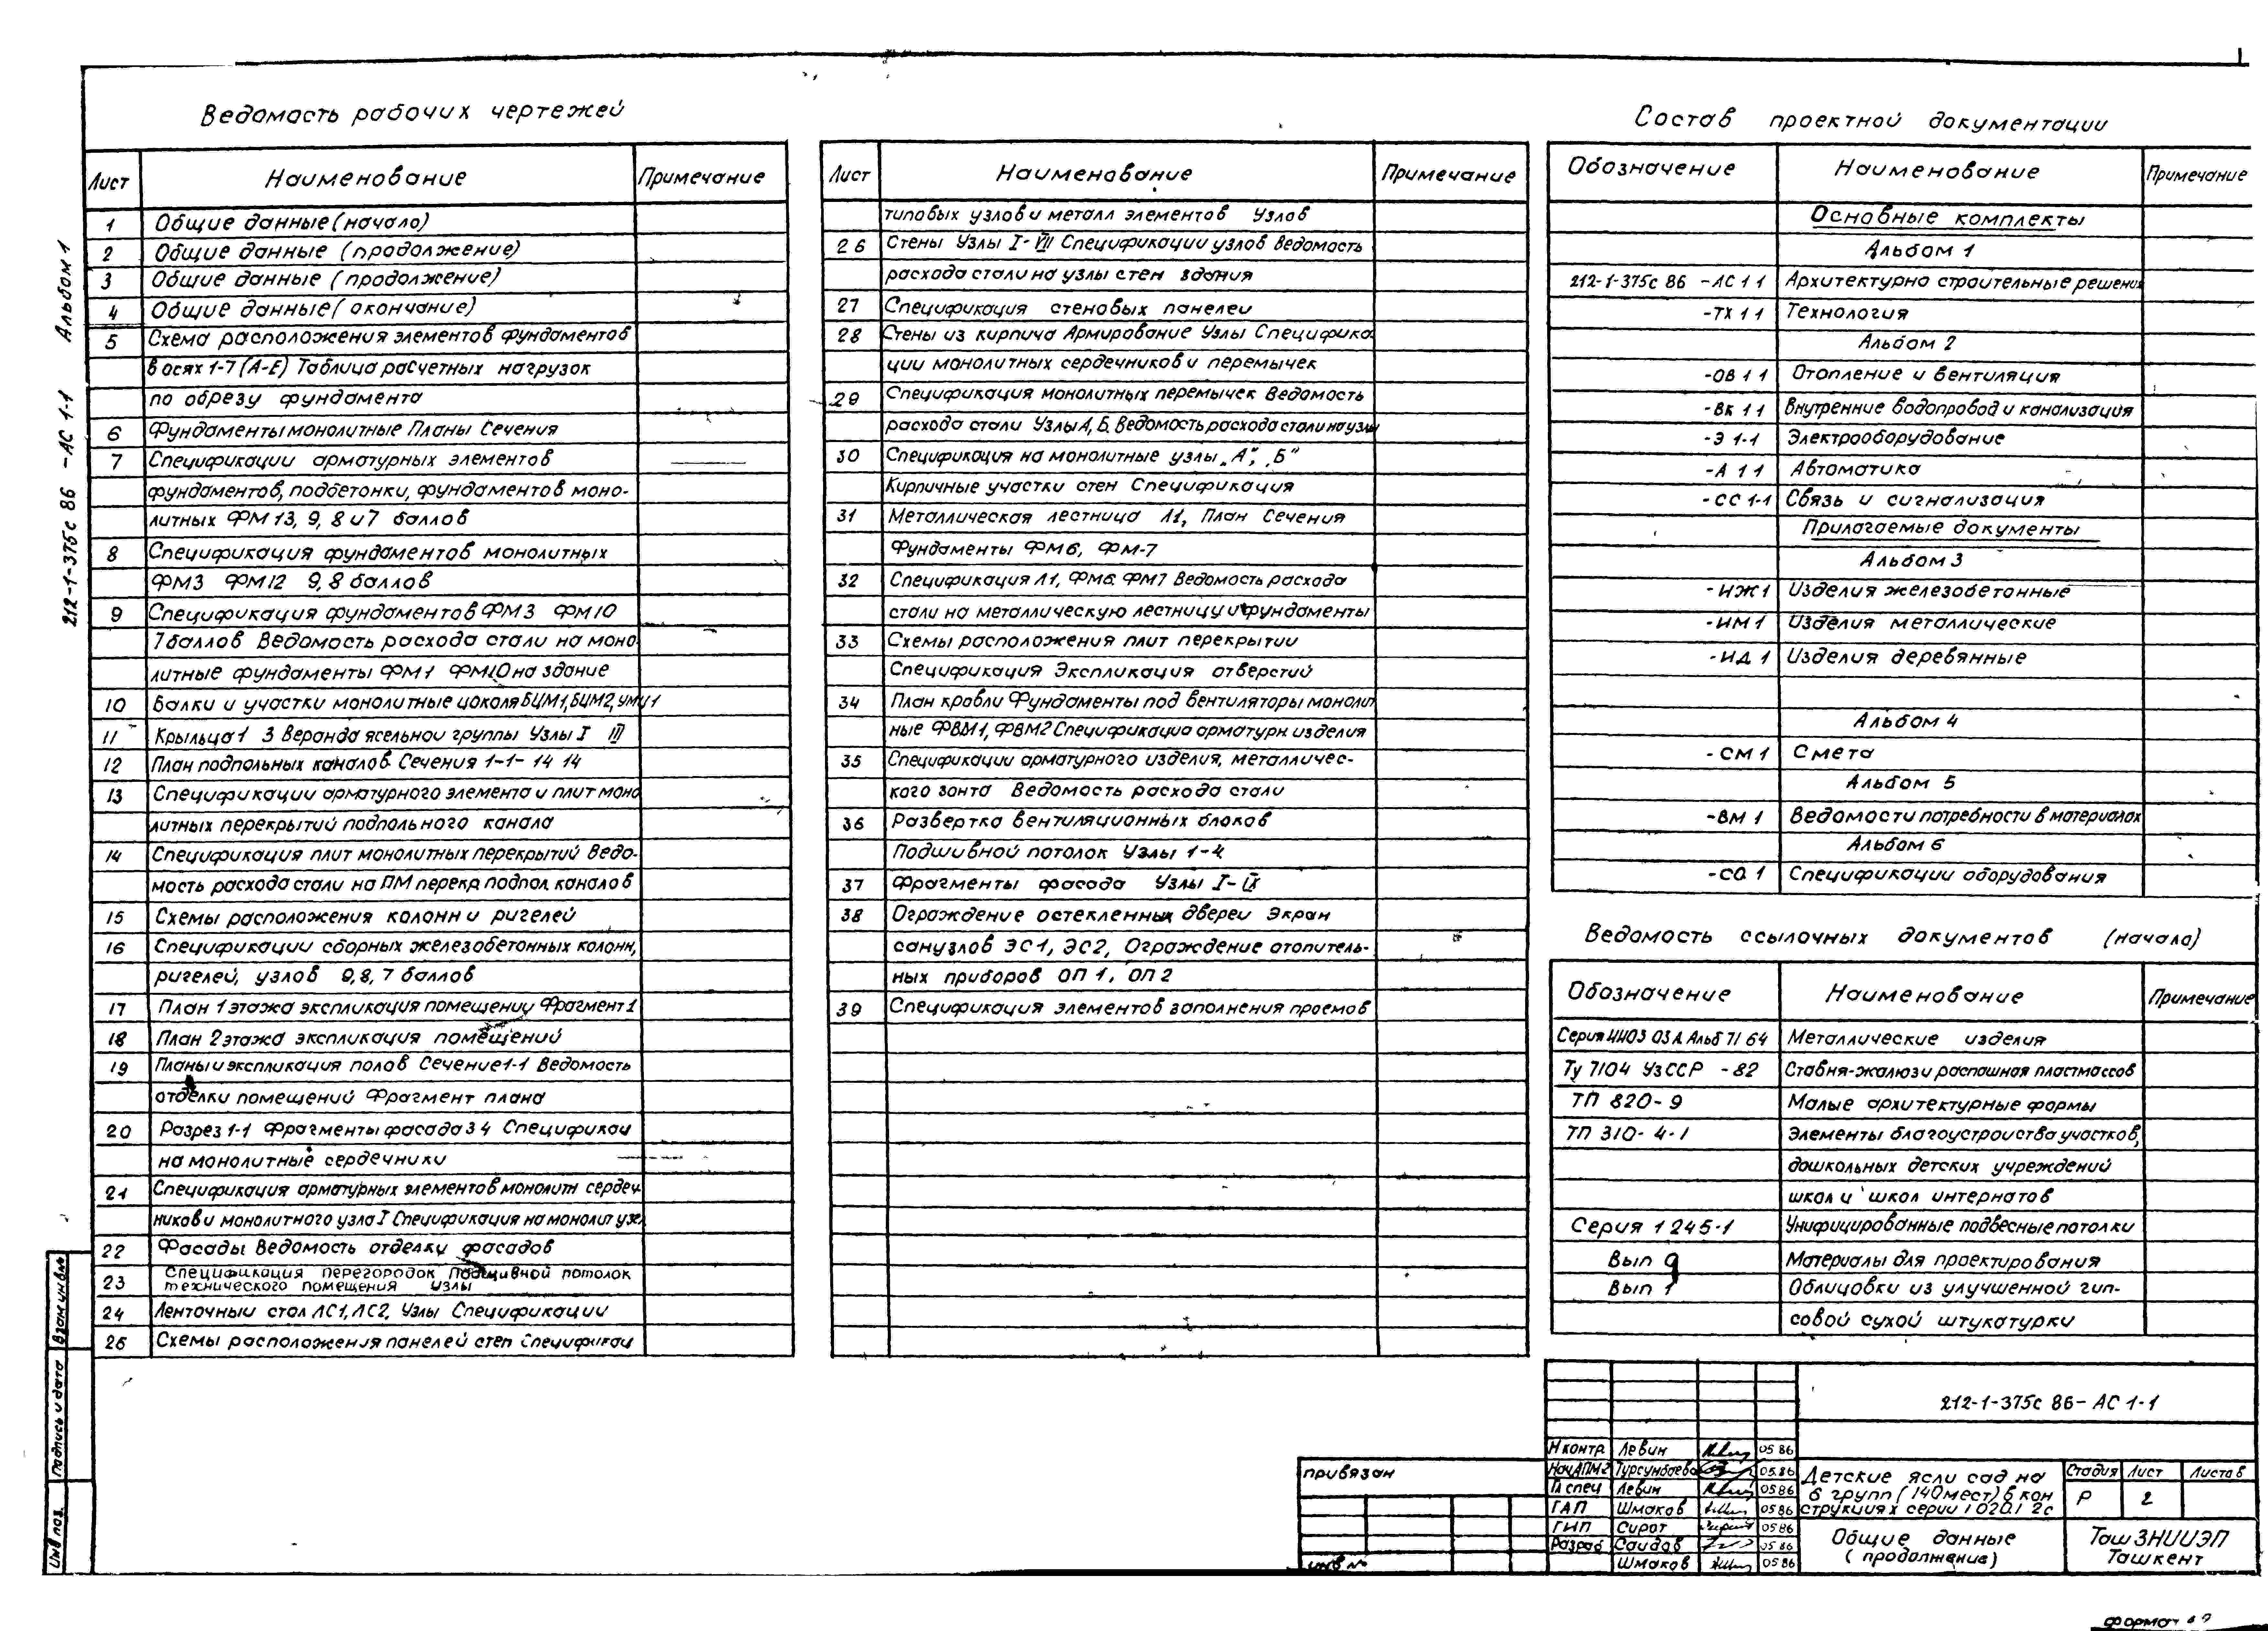 Ведомость рабочих чертежей
Лист Наименование Примечание
1 Общие данные (начало)
2 Общие данные (продолжение)
3 Общие данные (продолжение)
4 Общие данные (окончание)
5 Схема расположения элементов фундаментов
в осях 1-7 (А-Е) Таблица расчетных нагрузок
по обрезу фундамента
6 Фундаменты монолитные Планы Сечения
7 Спецификации арматурных элементов
фундаментов, подбетонки, фундаментов моно-
литных ФМ 13, 9, 8 и 7 баллов
8 Спецификация фундаментов монолитных
ФМ3 ФМ12 9, 8 баллов
9 Спецификация фундаментов ФМ3 ФМ10
7 баллов Ведомость расхода стали на моно
литные фундаменты ФМ1 ФМ10 на здание
10 Балки и участки монолитные цоколя БЦМ1, БЦМ2, УМЦ1
11 Крыльца 1 3 Веранда ясельной группы Узлы I III
12 План подпольных каналов Сечения 1-1- 14 14
13 Спецификации арматурного элемента и плит моно
литных перекрытий подпольного канала
14 Спецификация плит монолитных перекрытий Ведо-
мость расхода стали на ПМ перекр подпол каналов
15 Схемы расположения колонн и ригелей
16 Спецификации сборных железобетонных колонн,
ригелей, узлов 9, 8, 7 баллов
17 План 1 этажа экспликация помещении Фрагмент 1
18 План 2 этажа экспликация помещений
19 Планы и экспликация полов Сечение 1-1 Ведомость
отделки помещений Фрагмент плана
20 Разрез 1-1 Фрагменты фасада 3 4 Спецификац
на монолитные сердечники
21 Спецификация арматурных элементов монолитн сердеч
ников и монолитного узла I Спецификация на монолит узел
22 Фасады Ведомость отделки фасадов
23 Спецификация перегородок Подшивной потолок
технического помещения Узлы
24 Ленточный стол ЛС1, ЛС2, Узлы Спецификации
25 Схемы расположения панелей стен Спецификац
Лист Наименование Примечание
типовых узлов и металл элементов Узлов
26 Стены Узлы I-VIII Спецификации узлов Ведомость
расхода стали на узлы стен здания
27 Спецификация стеновых панелеи
28 Стены из кирпича Армирование Узлы Специфика
ции монолитных сердечников и перемычек
29 Спецификация монолитных перемычек Ведомость
расхода стали Узлы А, Б. Ведомость расхода стали на узлы
30 Спецификация на монолитные узлы „А", „Б"
Кирпичные участки стен Спецификация
31 Металлическая лестница Л1, План Сечения
Фундаменты ФМ6, ФМ-7
32 Спецификация Л1, ФМ6 ФМ7 Ведомость расхода
стали на металлическую лестницу и фундаменты
33 Схемы расположения плит перекрытии
Спецификация Экспликация отверстий
34 План кровли Фундаменты под вентиляторы монолит
ные ФВМ1, ФВМ2 Спецификация арматурн изделия
35 Спецификации арматурного изделия, металличес-
кого зонта Ведомость расхода стали
36 Развертка вентиляционных блоков
Подшивной потолок Узлы 1-4
37 Фрагменты фасада Узлы I-IX
38 Ограждение остекленных дверей Экран
санузлов ЭС1, ЭС2, Ограждение отопитель-
ных приборов ОП 1, ОП 2
39 Спецификация элементов заполнения проемов
Состав проектной документации
Обозначение Наименование Примечание
Основные комплекты
Альбом 1
212-1-375с 86 -АС 1 1 Архитектурно строительные решения
-ТХ 1 1 Технология
Альбом 2
-ОВ 1 1 Отопление и вентиляция
-ВК 1 1 Внутренние водопровод и канализация
-Э 1-1 Электрооборудование
-А 1 1 Автоматика
-СС 1-1 Связь и сигнализация
Прилагаемые документы
Альбом 3
-ИЖ 1 Изделия железобетонные
-ИМ 1 Изделия металлические
-ИД 1 Изделия деревянные
Альбом 4
-СМ 1 Смета
Альбом 5
-ВМ 1 Ведомости потребности в материалах
Альбом 6
-СО 1 Спецификации оборудования
Ведомость ссылочных документов (начало)
Обозначение Наименование Примечание
Серия ИИ03 03 А Альб 71 64 Металлические изделия
Ту 7104 УзССР -82 Ставня-жалюзи распашная пластмассов
ТП 820-9 Малые архитектурные формы
ТП 310-4-1 Элементы благоустроиства участков,
дошкольных детских учреждений
школ и школ интернатов
Серия 1 245-1 Унифицированные подвесные потолки
Вып 9 Материалы для проектирования
Вып 1 Облицовки из улучшенной гип-
совой сухой штукатурки
212-1-375с 86- АС 1-1
Н контр Левин 05 86
Нач АПМ-2 Турсунбаева 05.86
Гл спец Левин 05 86
ГАП Шмаков 05 86
ГИП Сирот 05 86
Разраб Саидов 05 86
Шмаков 05 86
привязан
инв №
Детские ясли сад на
6 групп (140 мест) в кон
струкциях серии 1 020.1 2с
Стадия Лист Листов
Р 2
Общие данные
(продолжение)
Таш ЗНИИЭП
Ташкент
212-1-375с 86 -АС 1-1 Альбом 1
Инв под. Подпись и дата Взам инв №
Формат
1